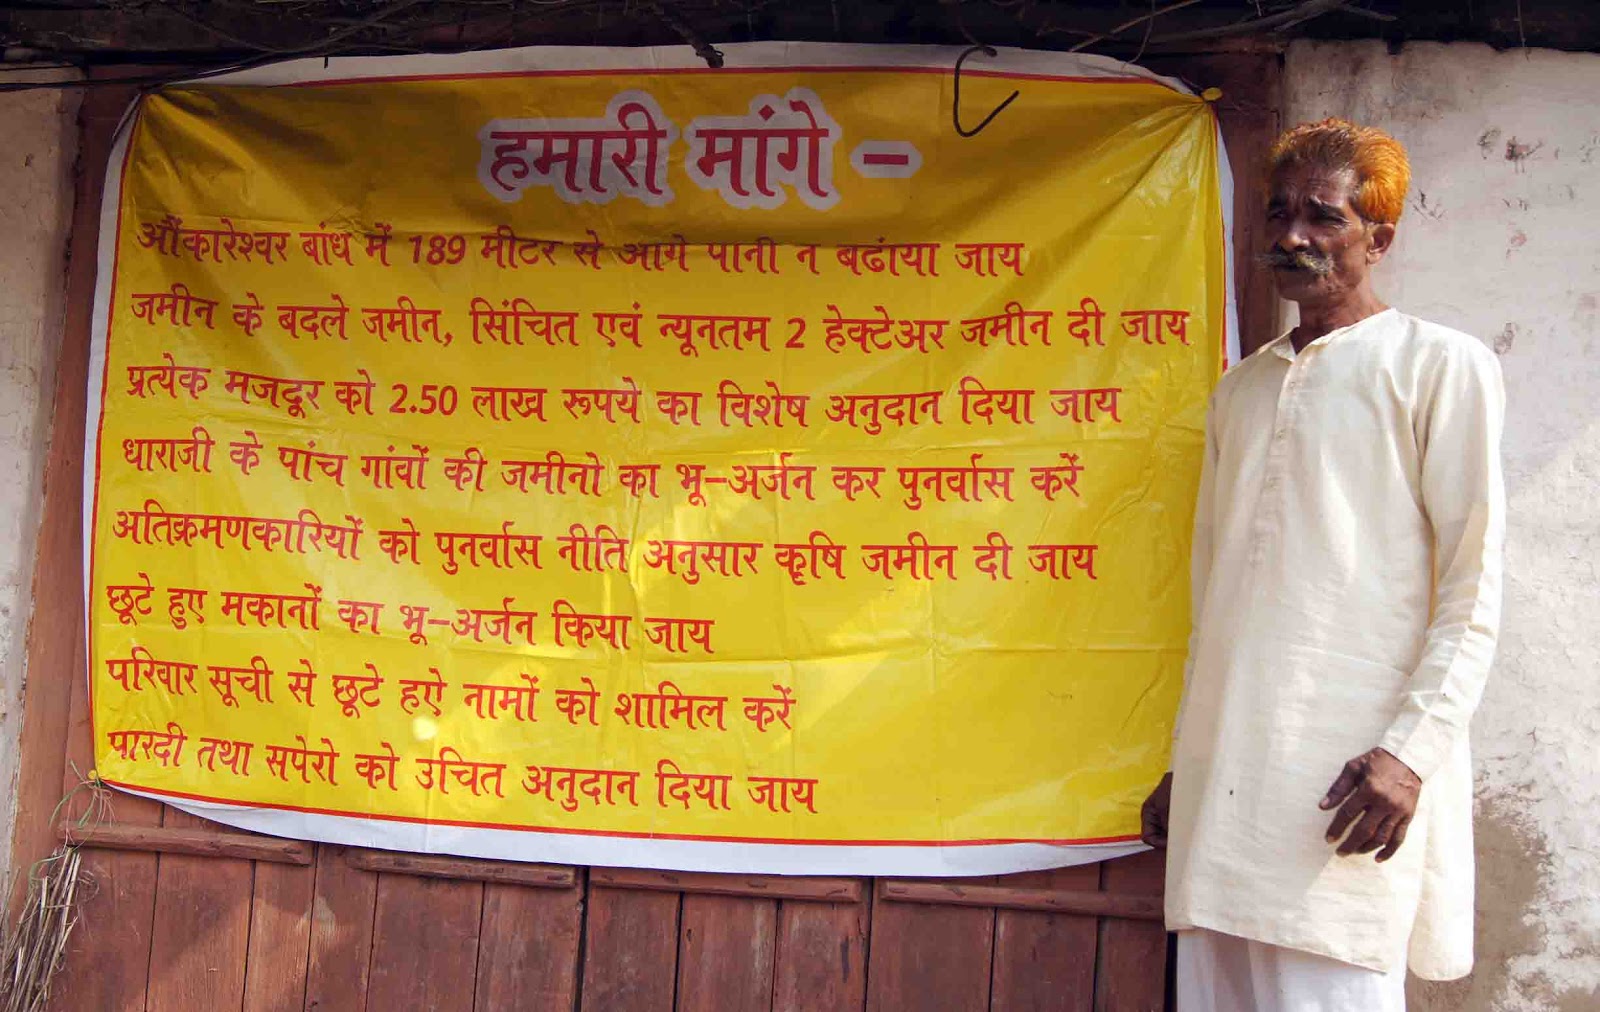 हमारी मांगे –
औंकारेश्वर बांध में 189 मीटर से आगे पानी न बढांया जाय
जमीन के बदले जमीन, सिंचित एवं न्यूनतम 2 हेक्टेअर जमीन दी जाय
प्रत्येक मजदूर को 2.50 लाख रूपये का विशेष अनुदान दिया जाय
धाराजी के पांच गांवों की जमीनो का भू–अर्जन कर पुनर्वास करें
अतिक्रमणकारियों को पुनर्वास नीति अनुसार कृषि जमीन दी जाय
छूटे हुए मकानों का भू–अर्जन किया जाय
परिवार सूची से छूटे हऐ नामों को शामिल करें
पारदी तथा सपेरो को उचित अनुदान दिया जाय